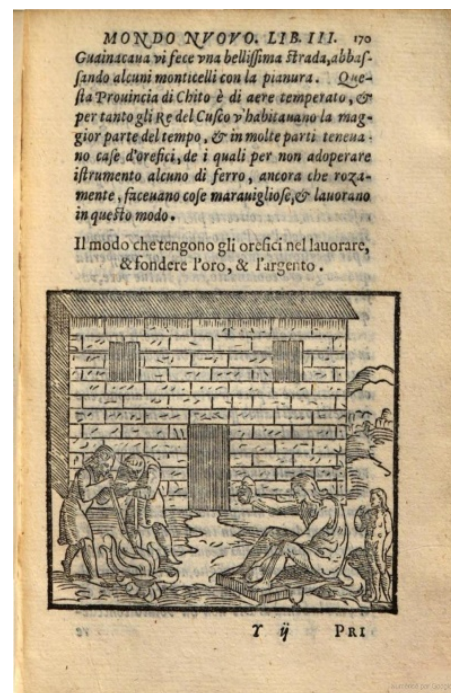 MONDO NVOVO. LIB. III. 170
Guainacaua vi fece vna bellissima strada, abbas-
sando alcuni monticelli con la pianura. Que-
sta Prouincia di Chito è di aere temperato, &
per tanto gli Re del Cusco v'habitauano la mag-
gior parte del tempo, & in molte parti teneua-
no case d'orefici, de i quali per non adoperare
istrumento alcuno di ferro, ancora che roza-
mente, faceuano cose marauigliose, & lauorano
in questo modo.
Il modo che tengono gli orefici nel lauorare,
& fondere l'oro, & l'argento.
Y ij PRI